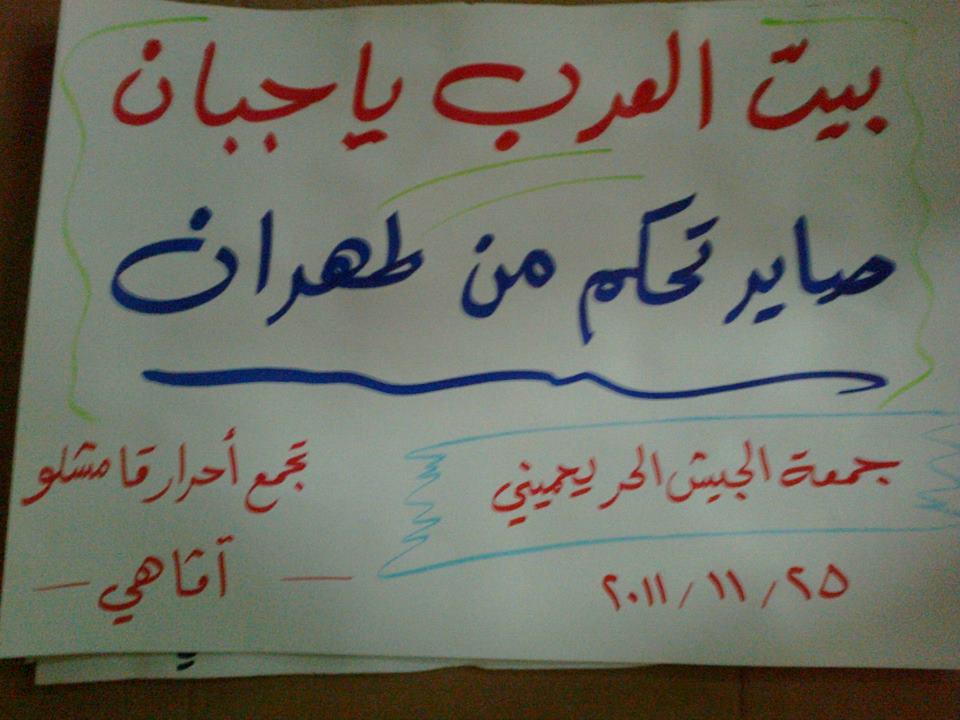 بيت العرب ياجبان
صاير تحكم من طهران
جمعة الجيش الحر يحميني
٢٠١١/١١/٢٥
تجمع أحرار قامشلو
- آڤاهي -